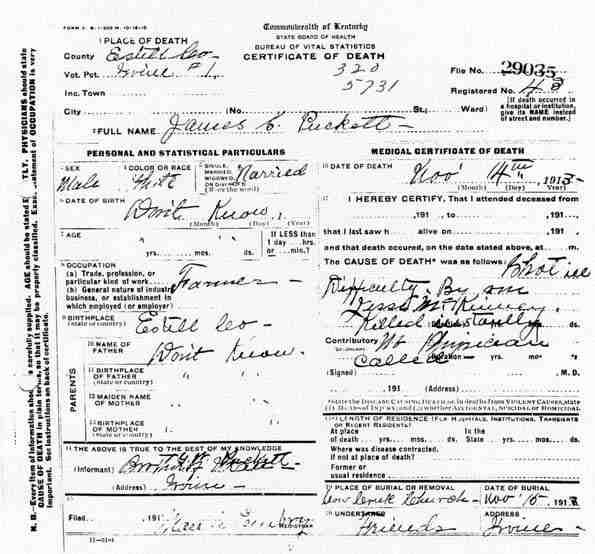 FORM V. S. 1-200 M. 10-18-10
Commonwealth of Kentucky
STATE BOARD OF HEALTH
BUREAU OF VITAL STATISTICS
CERTIFICATE OF DEATH
1 PLACE OF DEATH
County Estill Co
Vot. Pct. Irvine #1
Inc. Town
City (No. St.; Ward)
320
5731
File No. 29035
Registered No.
[If death occurred in a hospital or institution, give its NAME instead of street and number.]
2 FULL NAME James C Puckett
PERSONAL AND STATISTICAL PARTICULARS
3 SEX
Male
4 COLOR OR RACE
White
5 SINGLE, MARRIED, WIDOWED, OR DIVORCED (Write the word)
Married
6 DATE OF BIRTH
Don't Know.
(Month) (Day) (Year)
7 AGE
yrs. mos. ds.
If LESS than 1 day ....hrs. or ....min.?
8 OCCUPATION
(a) Trade, profession, or particular kind of work
Farmer
(b) General nature of industry business, or establishment in which employed (or employer)
9 BIRTHPLACE
(State or country)
Estill Co
PARENTS
10 NAME OF FATHER
Don't Know.
11 BIRTHPLACE OF FATHER
(State or country)
" "
12 MAIDEN NAME OF MOTHER
" "
13 BIRTHPLACE OF MOTHER
(State or country)
" "
14 THE ABOVE IS TRUE TO THE BEST OF MY KNOWLEDGE
(Informant) Puckett
(Address) Irvine
15
Filed 191
REGISTRAR
11-01-1
MEDICAL CERTIFICATE OF DEATH
16 DATE OF DEATH
Nov 4th, 1913
(Month) (Day) (Year)
17 I HEREBY CERTIFY, That I attended deceased from
, 191 , to , 191 ,
that I last saw h alive on , 191 ,
and that death occurred, on the date stated above, at m.
The CAUSE OF DEATH* was as follows:
Shot in
Difficulty. By one
Jesse McKinney
Killed instantly
ds.
Contributory
(SECONDARY)
No Physician
Called
(Duration) yrs. mos. ds.
(Signed) M. D.
, 191 (Address)
*State the DISEASE CAUSING DEATH, or, in deaths from VIOLENT CAUSES, state (1) MEANS OF INJURY; and (2) whether ACCIDENTAL, SUICIDAL or HOMICIDAL
18 LENGTH OF RESIDENCE (FOR HOSPITALS, INSTITUTIONS, TRANSIENTS OR RECENT RESIDENTS)
At place of death yrs. mos. ds.
In the State yrs. mos. ds.
Where was disease contracted, if not at place of death?
Former or usual residence
19 PLACE OF BURIAL OR REMOVAL
Church
DATE OF BURIAL
Nov 5, 1913
20 UNDERTAKER
Friends
ADDRESS
Irvine